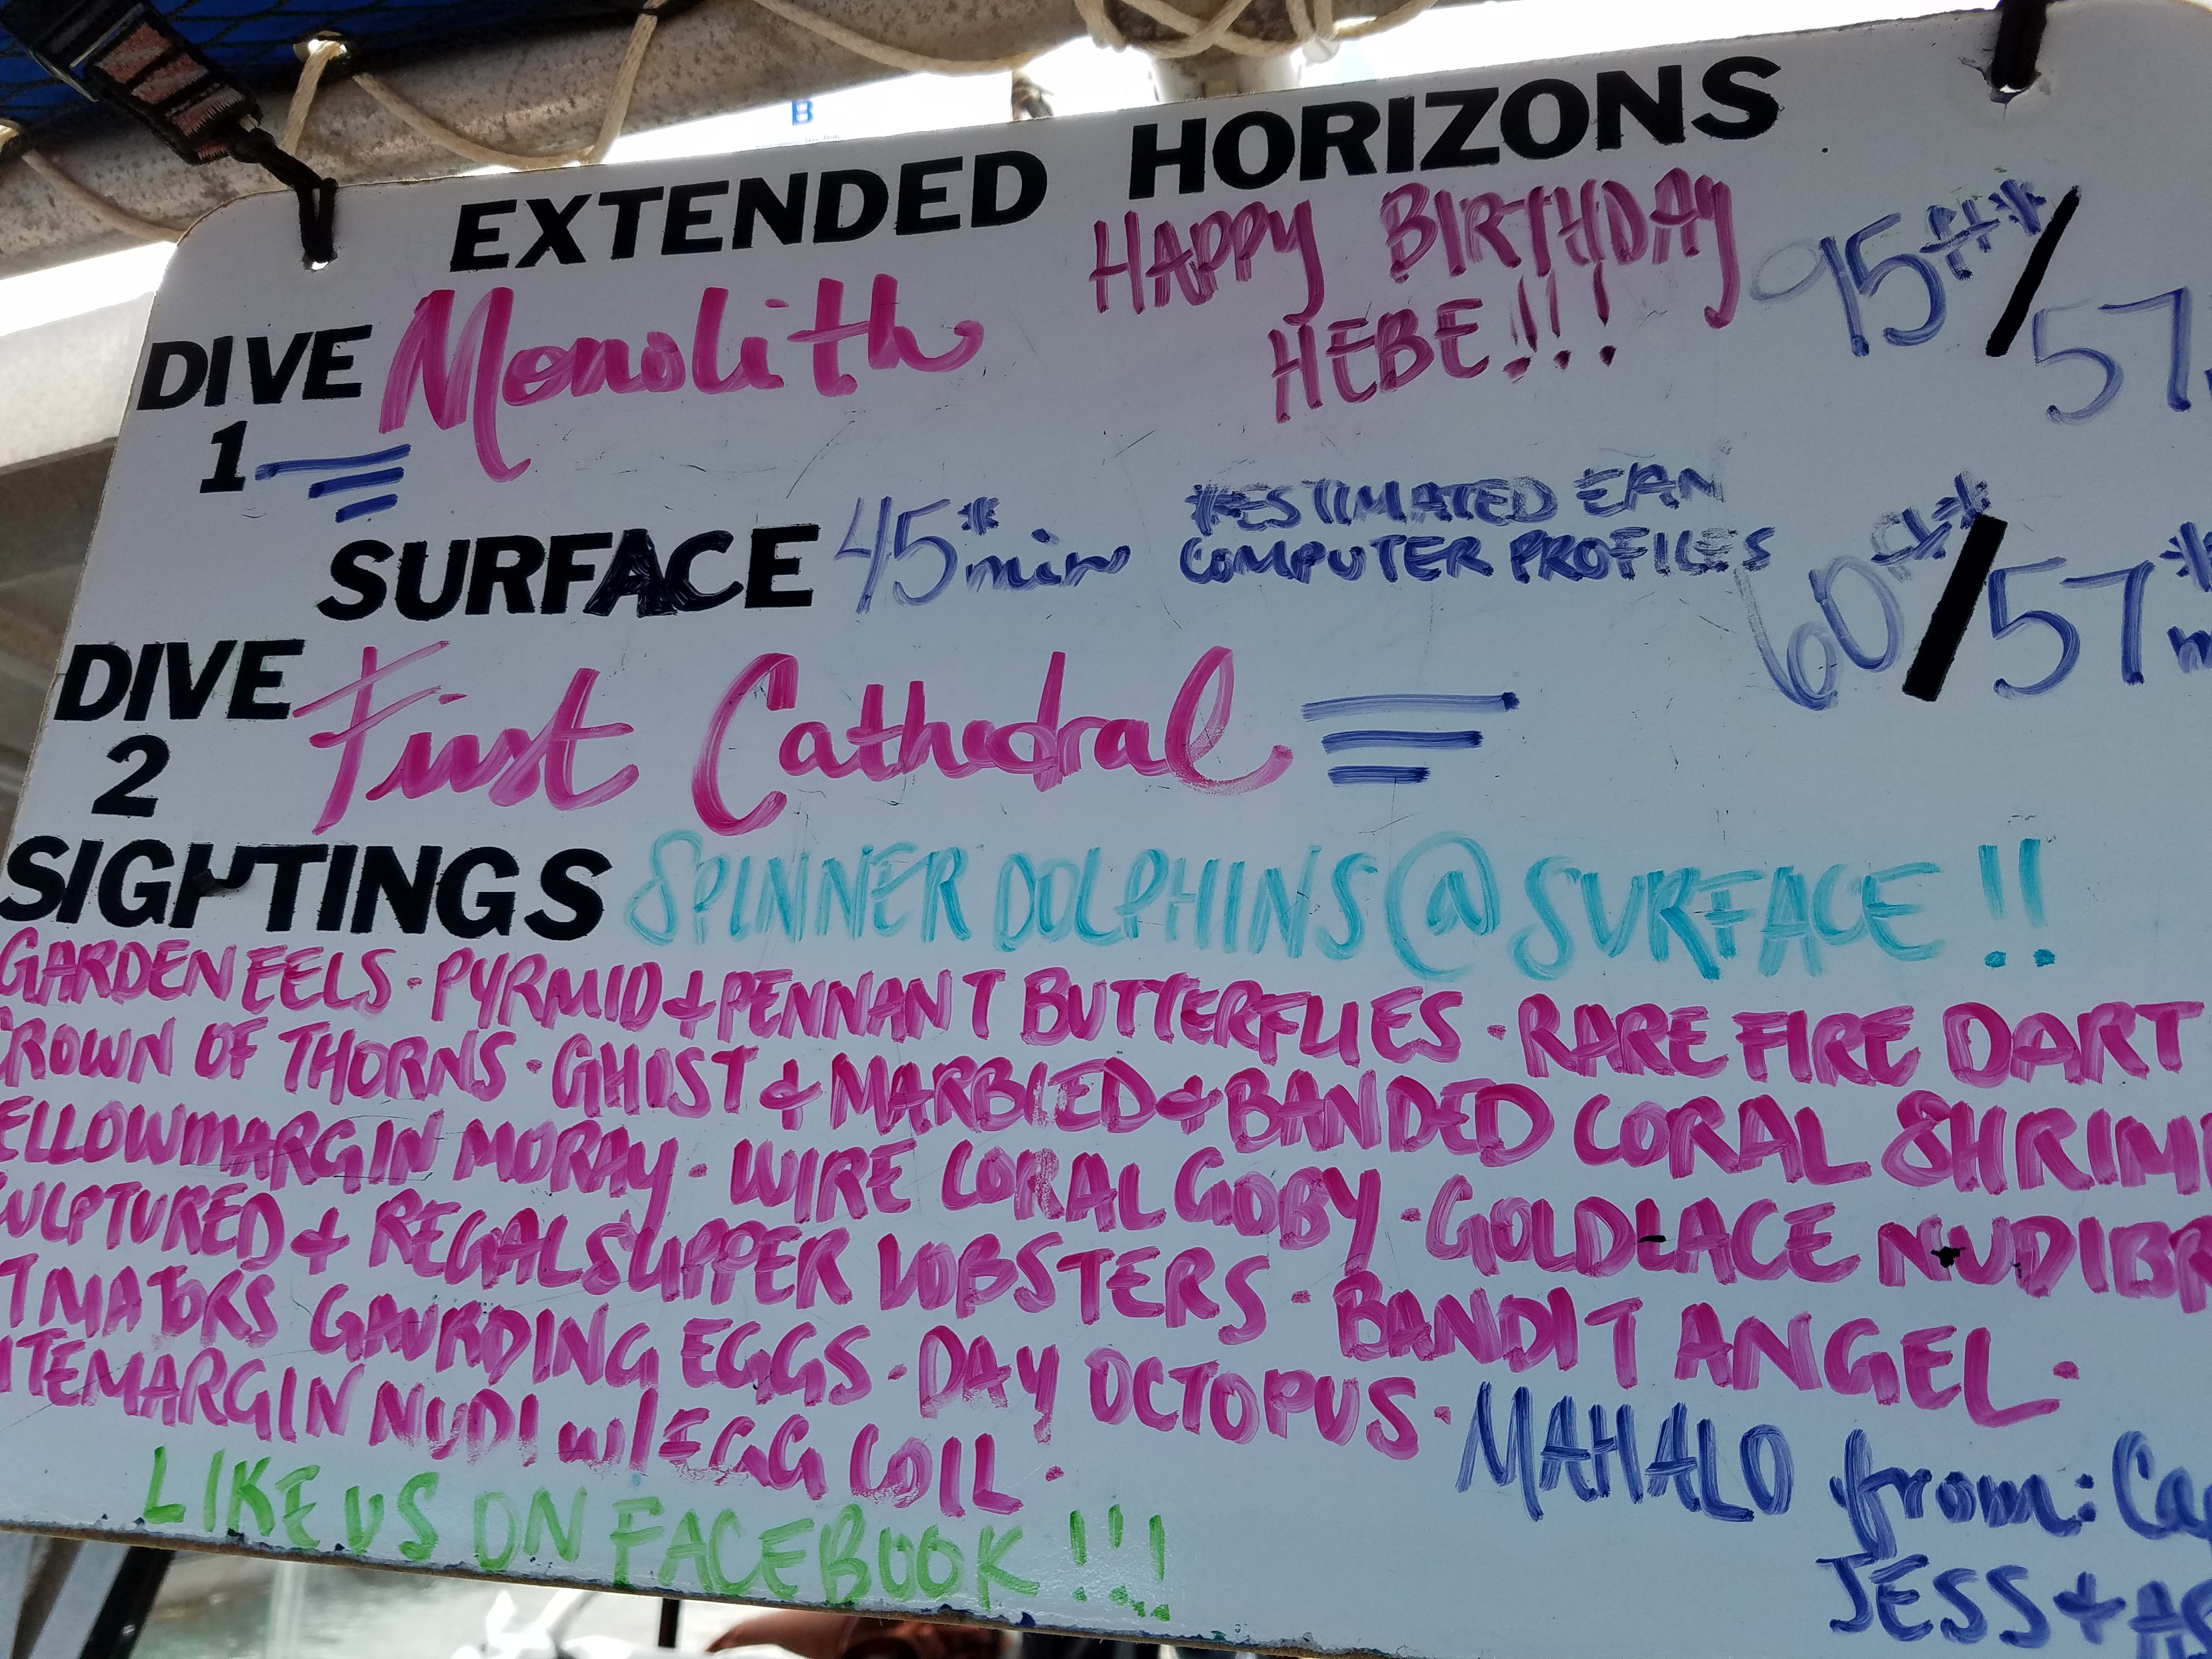 EXTENDED HORIZONS
HAPPY BIRTHDAY
HEBE!!!
DIVE 1 Monolith 95ft*/57
SURFACE 45* min
*ESTIMATED EAN
COMPUTER PROFILES
60ft*/57*
DIVE 2 First Cathedral
SIGHTINGS SPINNER DOLPHINS @ SURFACE!!
GARDEN EELS · PYRMID + PENNANT BUTTERFLIES · RARE FIRE DART
CROWN OF THORNS · GHOST + MARBLED + BANDED CORAL SHRIM
ELLOWMARGIN MORAY · WIRE CORAL GOBY · GOLDLACE NUDIBR
CULPTURED + REGAL SLIPPER LOBSTERS · BANDIT ANGEL ·
TMATORS GAURDING EGGS · DAY OCTOPUS ·
ITEMARGIN NUDI w/ EGG COIL ·
MAHALO from: Ca
JESS + AS
LIKE US ON FACEBOOK!!!